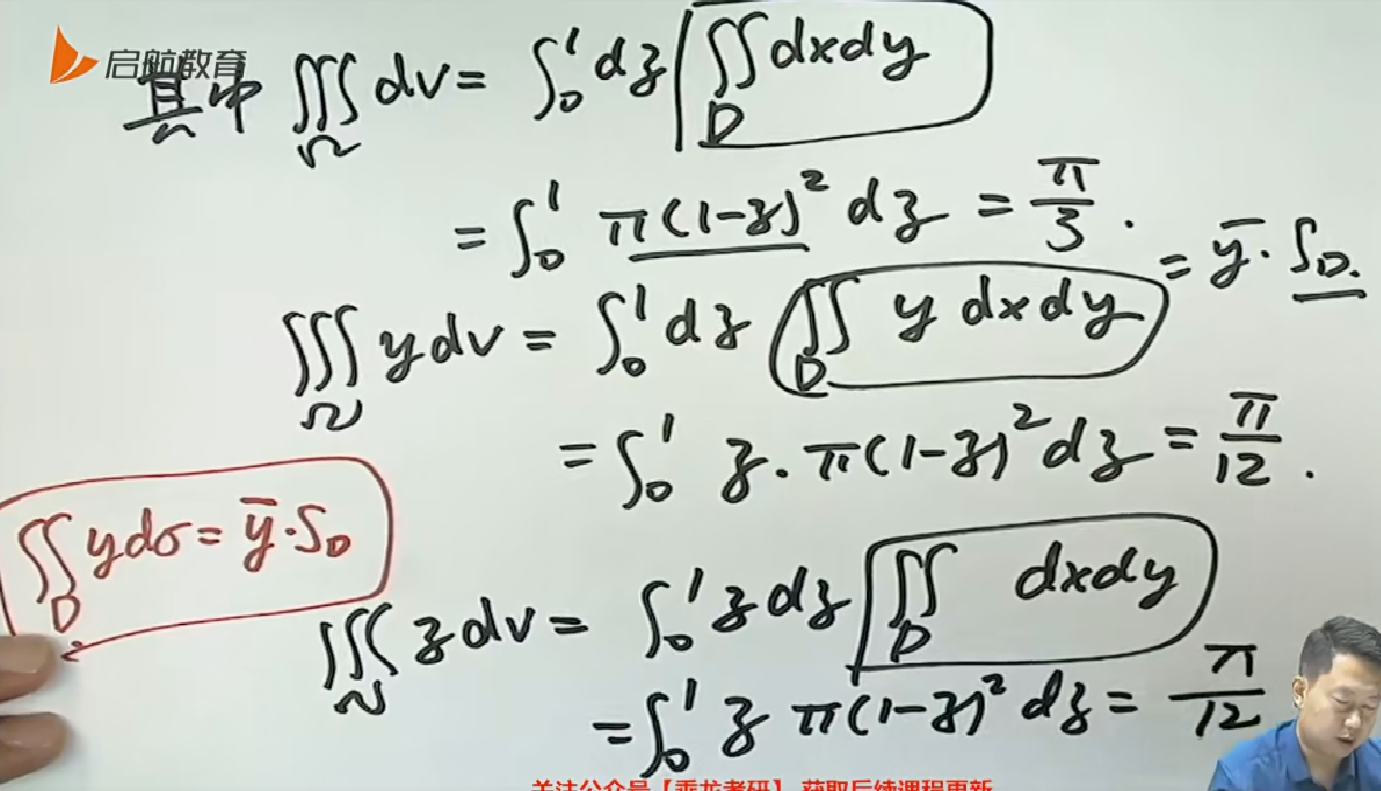 启航教育
其中 ∭_Ω dv = ∫_0^1 dz ∬_D dxdy
= ∫_0^1 π(1-z)^2 dz = π/3 .
∭_Ω y dv = ∫_0^1 dz ∬_D y dxdy = ȳ · S_D.
= ∫_0^1 z · π(1-z)^2 dz = π/12 .
∬_D y dσ = ȳ · S_D
∭_Ω z dv = ∫_0^1 z dz ∬_D dxdy
= ∫_0^1 z π(1-z)^2 dz = π/12
关注公众号【乘龙考研】获取后续课程更新